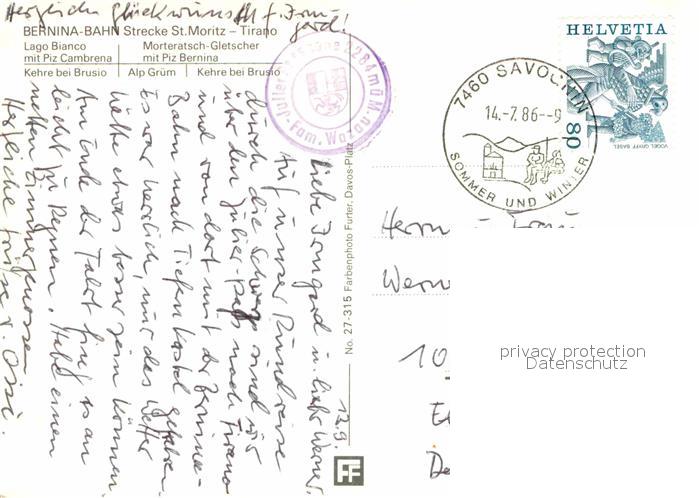 Herzlichen Glückwunsch f. Irmgard!
BERNINA-BAHN Strecke St.Moritz – Tirano
Lago Bianco
mit Piz Cambrena
Morteratsch-Gletscher
mit Piz Bernina
Kehre bei Brusio
Alp Grüm
Kehre bei Brusio
12.9.
Liebe Irmgard u. lieber Werner,
Auf unserer Rundreise
durch die Schweiz sind wir
über den Julier-Pass nach Tirano
und von dort mit der Bernina-
Bahn nach Tiefenkastel gefahren.
Es war herrlich, nur das Wetter
hätte etwas besser sein können.
Am Ende der Fahrt fing es an
leicht zu regnen. Habe einen
netten Zimmergenossen.
Herzliche Grüße v. Ossi.
No. 27-315 Farbenphoto Furter, Davos-Platz
FF
HELVETIA
80
VOGEL GRYFF BASEL
7460 SAVOGNIN
14.-7.86--9
SOMMER UND WINTER
Fam.
Herrn u. Frau
Wern
10
privacy protection
Datenschutz